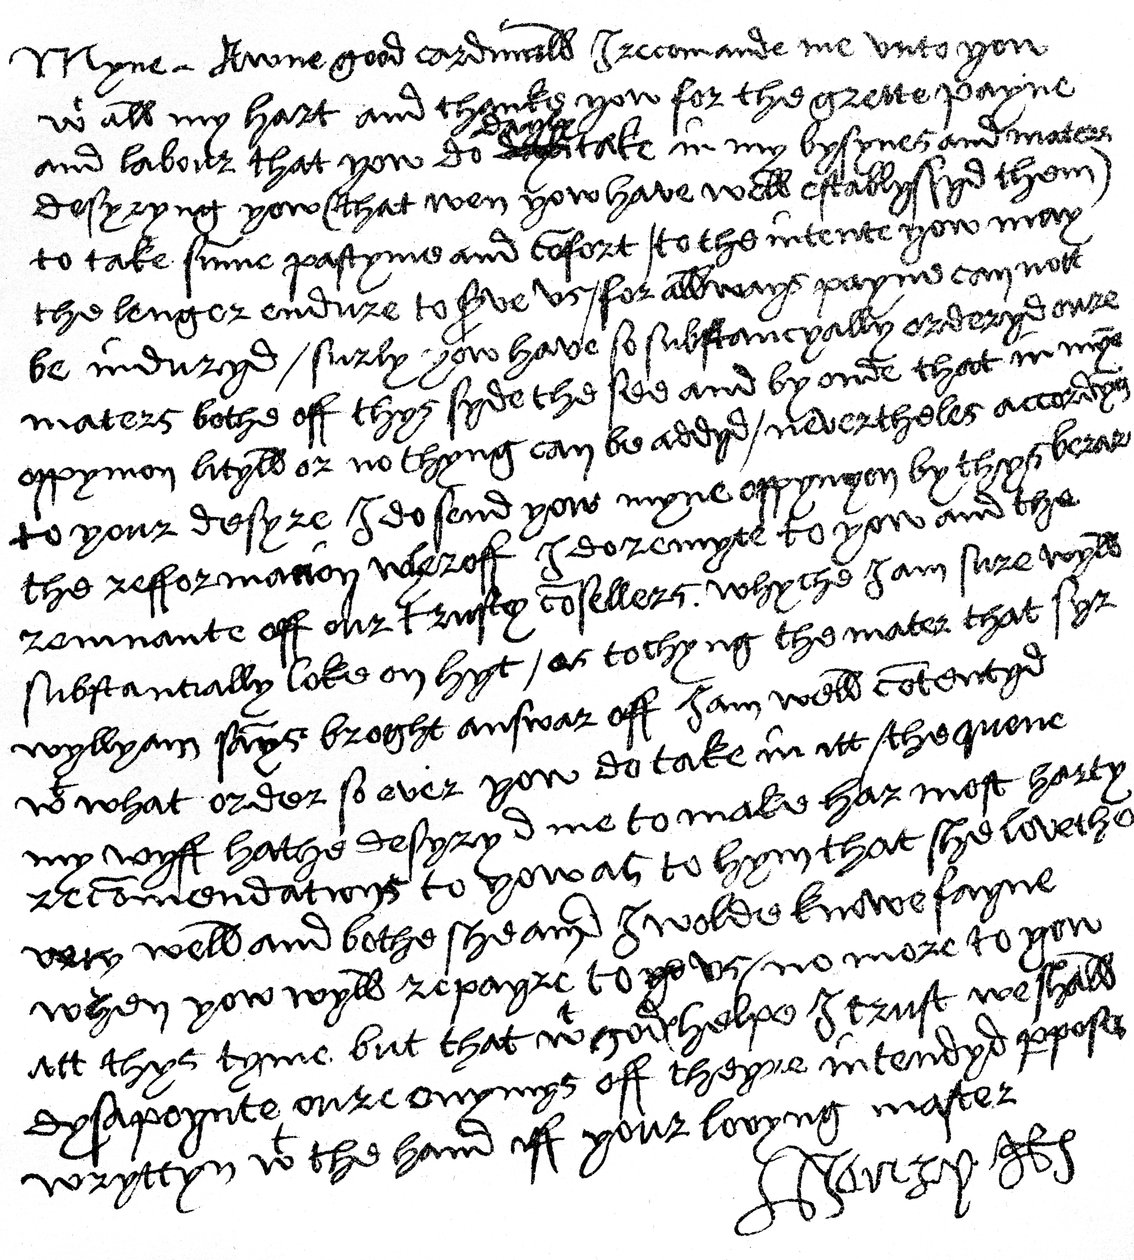 Myne awne good cardinall I recomande me unto yow
wt all my hart and thanke yow for the grette payne
and labour that yow do dayly take in my bysynes and maters
desyryng yow (that wen yow have well establyssyd them)
to take summe pastyme and cōfort / to the intente yow may
the lenger endure to serve us / for allways payne can nott
be induryd / surly yow have so substancyally orderyd oure
maters bothe off thys syde the see and by onde that in myne
oppynion lityll or no thyng can be addyd / nevertheles accordyng
to your desyre I do send yow myne oppynyon by thys berar
the refformacion wheroff I do remyte to yow and the
remnante off our trusty cōsellers whyche I am sure wyll
substantially loke on hyt / as tochyng the mater that syr
wyllyam sāys broght answar off I am well cōtentyd
wt what order so ever yow do take in itt / the quene
my wyff hathe desyryd me to make har most harty
recōmendations to yow as to hym that she lovethe
very well and bothe she and I wolde knowe fayne
when yow wyll repayre to us / no more to yow
att thys tyme but that wt god's helpe I trust we shall
dysapoynte oure enymys off theyre intendyd pposes
wryttyn wt the hand off your lovyng master
Henry